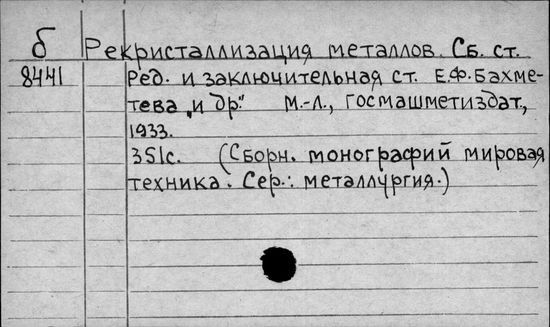 б Рекристаллизация металлов. Сб. ст.
8441 Ред. и заключительная ст. Е.Ф. Бахме-
тева „и др." М.-Л., Госмашметиздат,
1933.
351с. (Сборн. монографий мировая
техника. Сер.: металлургия.)